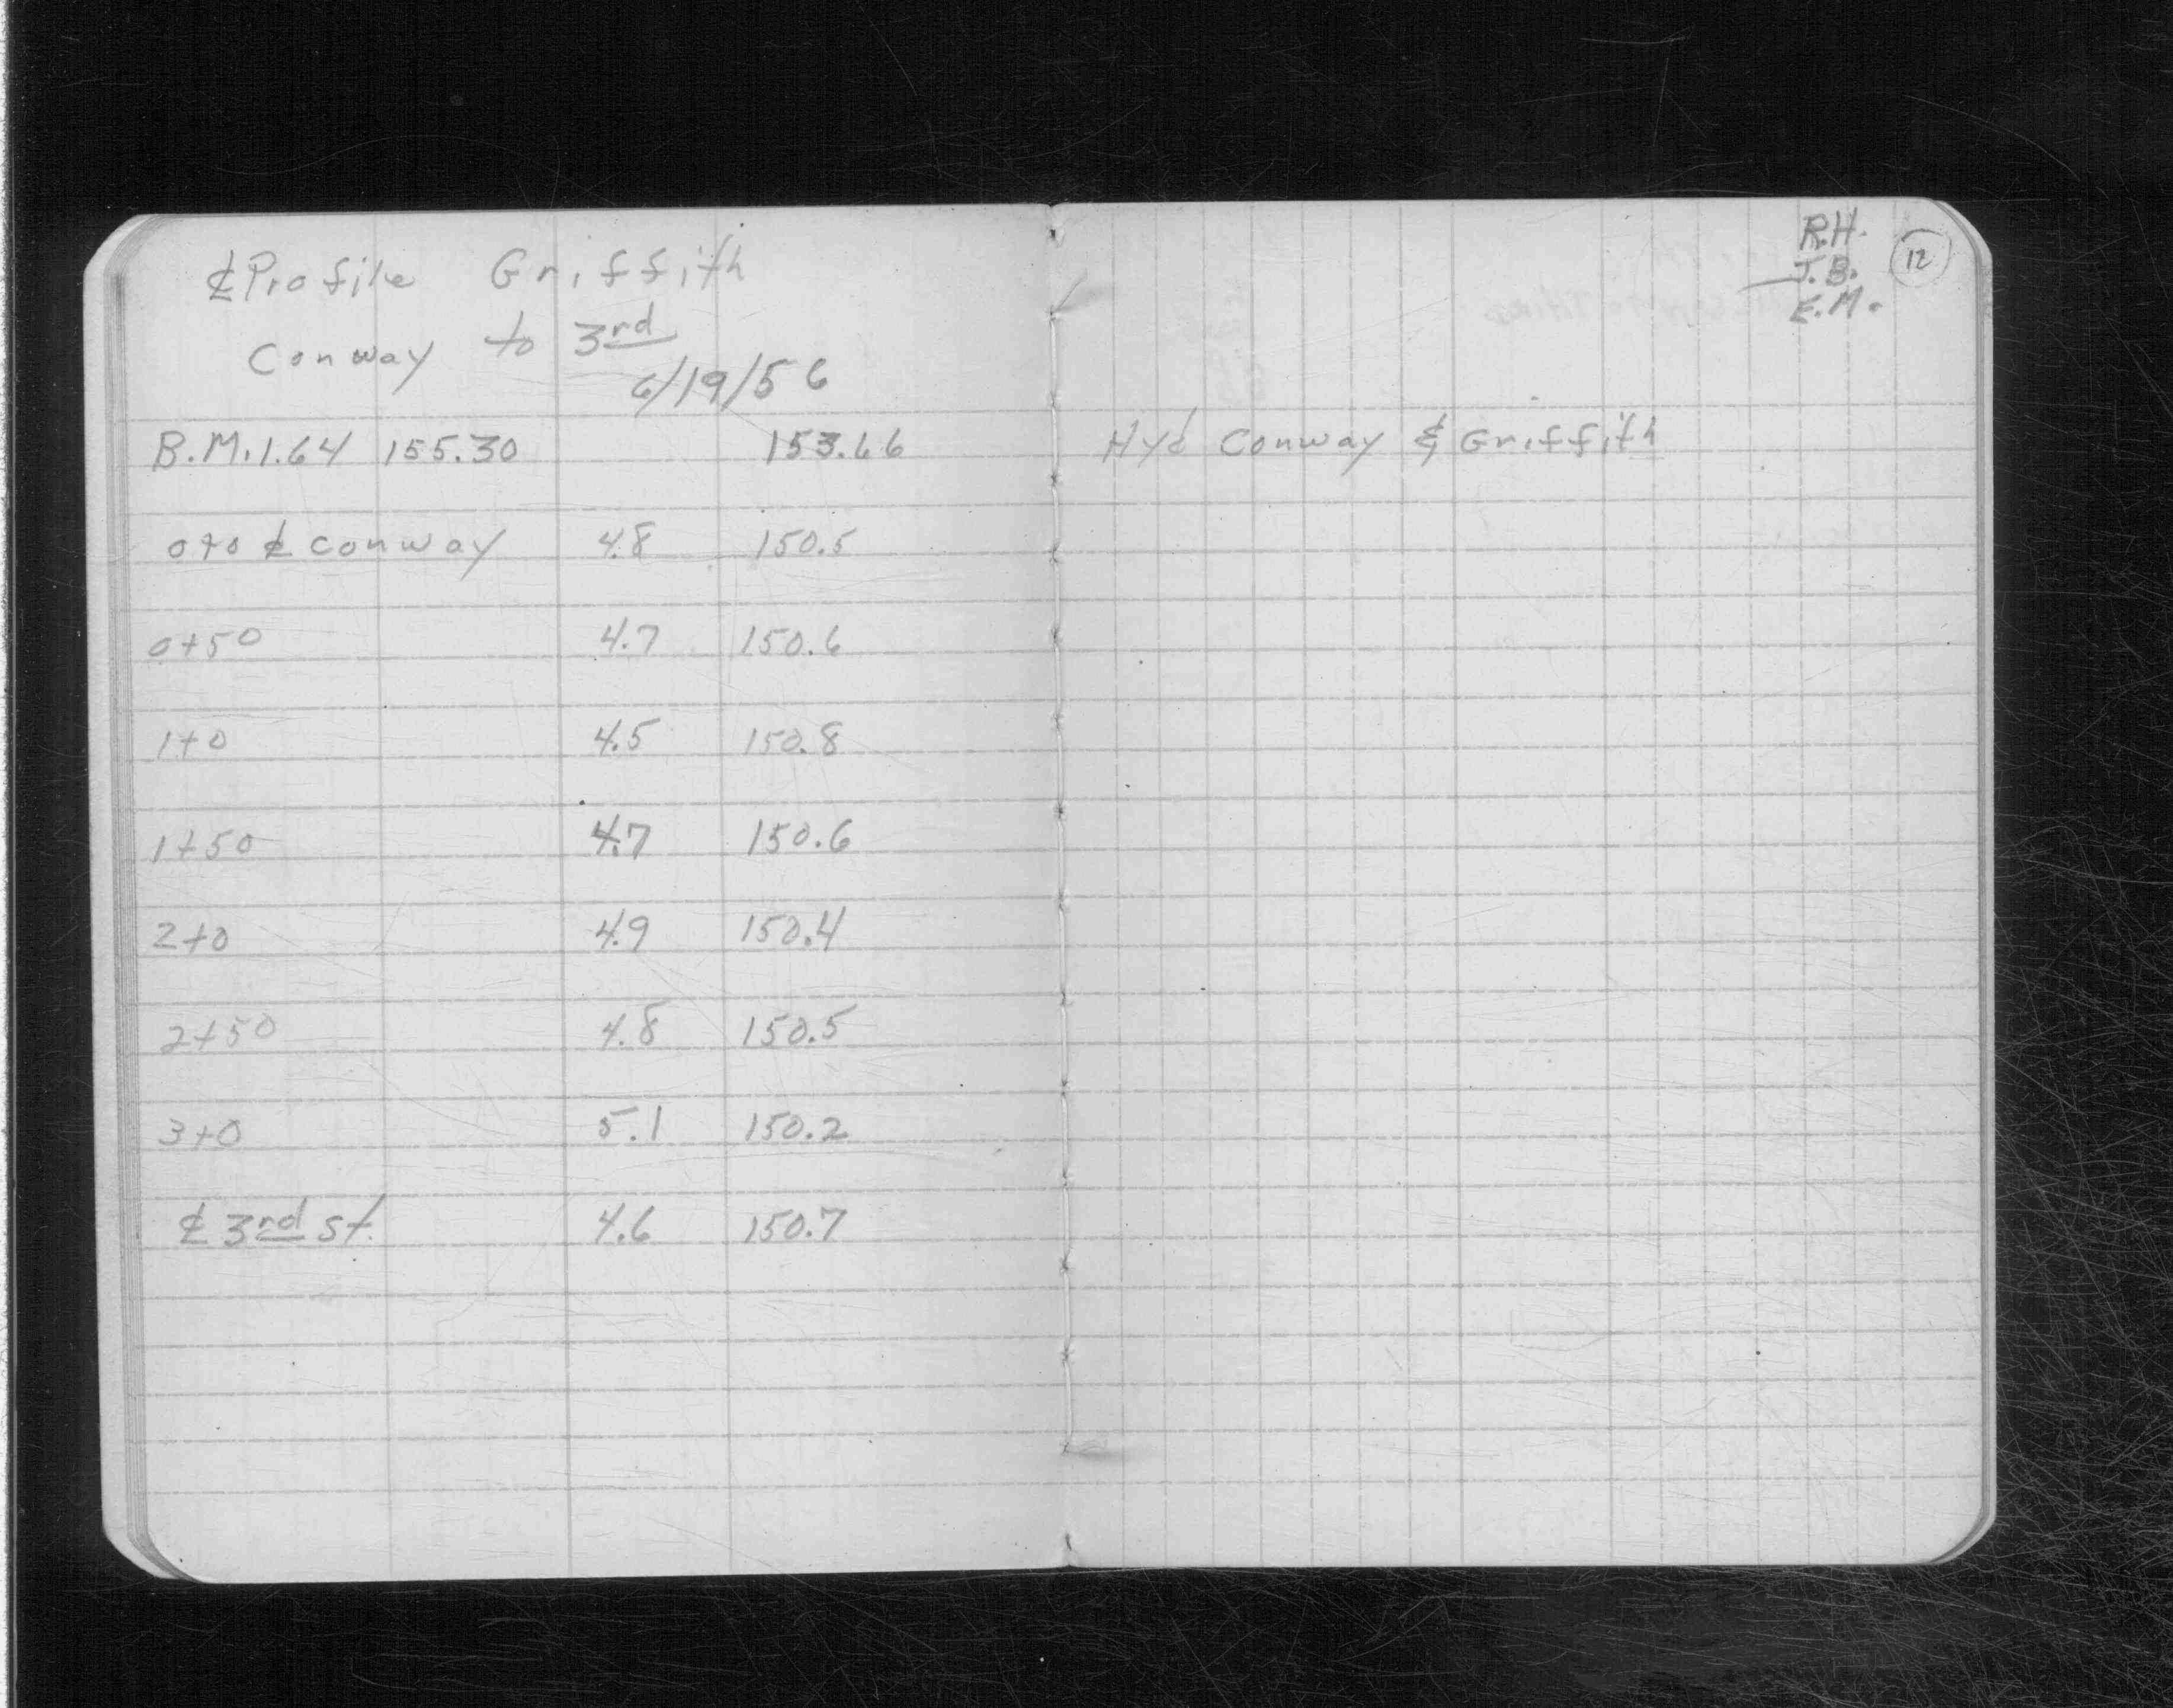 ℄ Profile Griffith
Conway to 3rd
6/19/56
B.M. 1.64 155.30 153.66
0+0 ℄ Conway 4.8 150.5
0+50 4.7 150.6
1+0 4.5 150.8
1+50 4.7 150.6
2+0 4.9 150.4
2+50 4.8 150.5
3+0 5.1 150.2
℄ 3rd St. 4.6 150.7
R.H.
J.B.
E.M.
12
Hyd Conway & Griffith